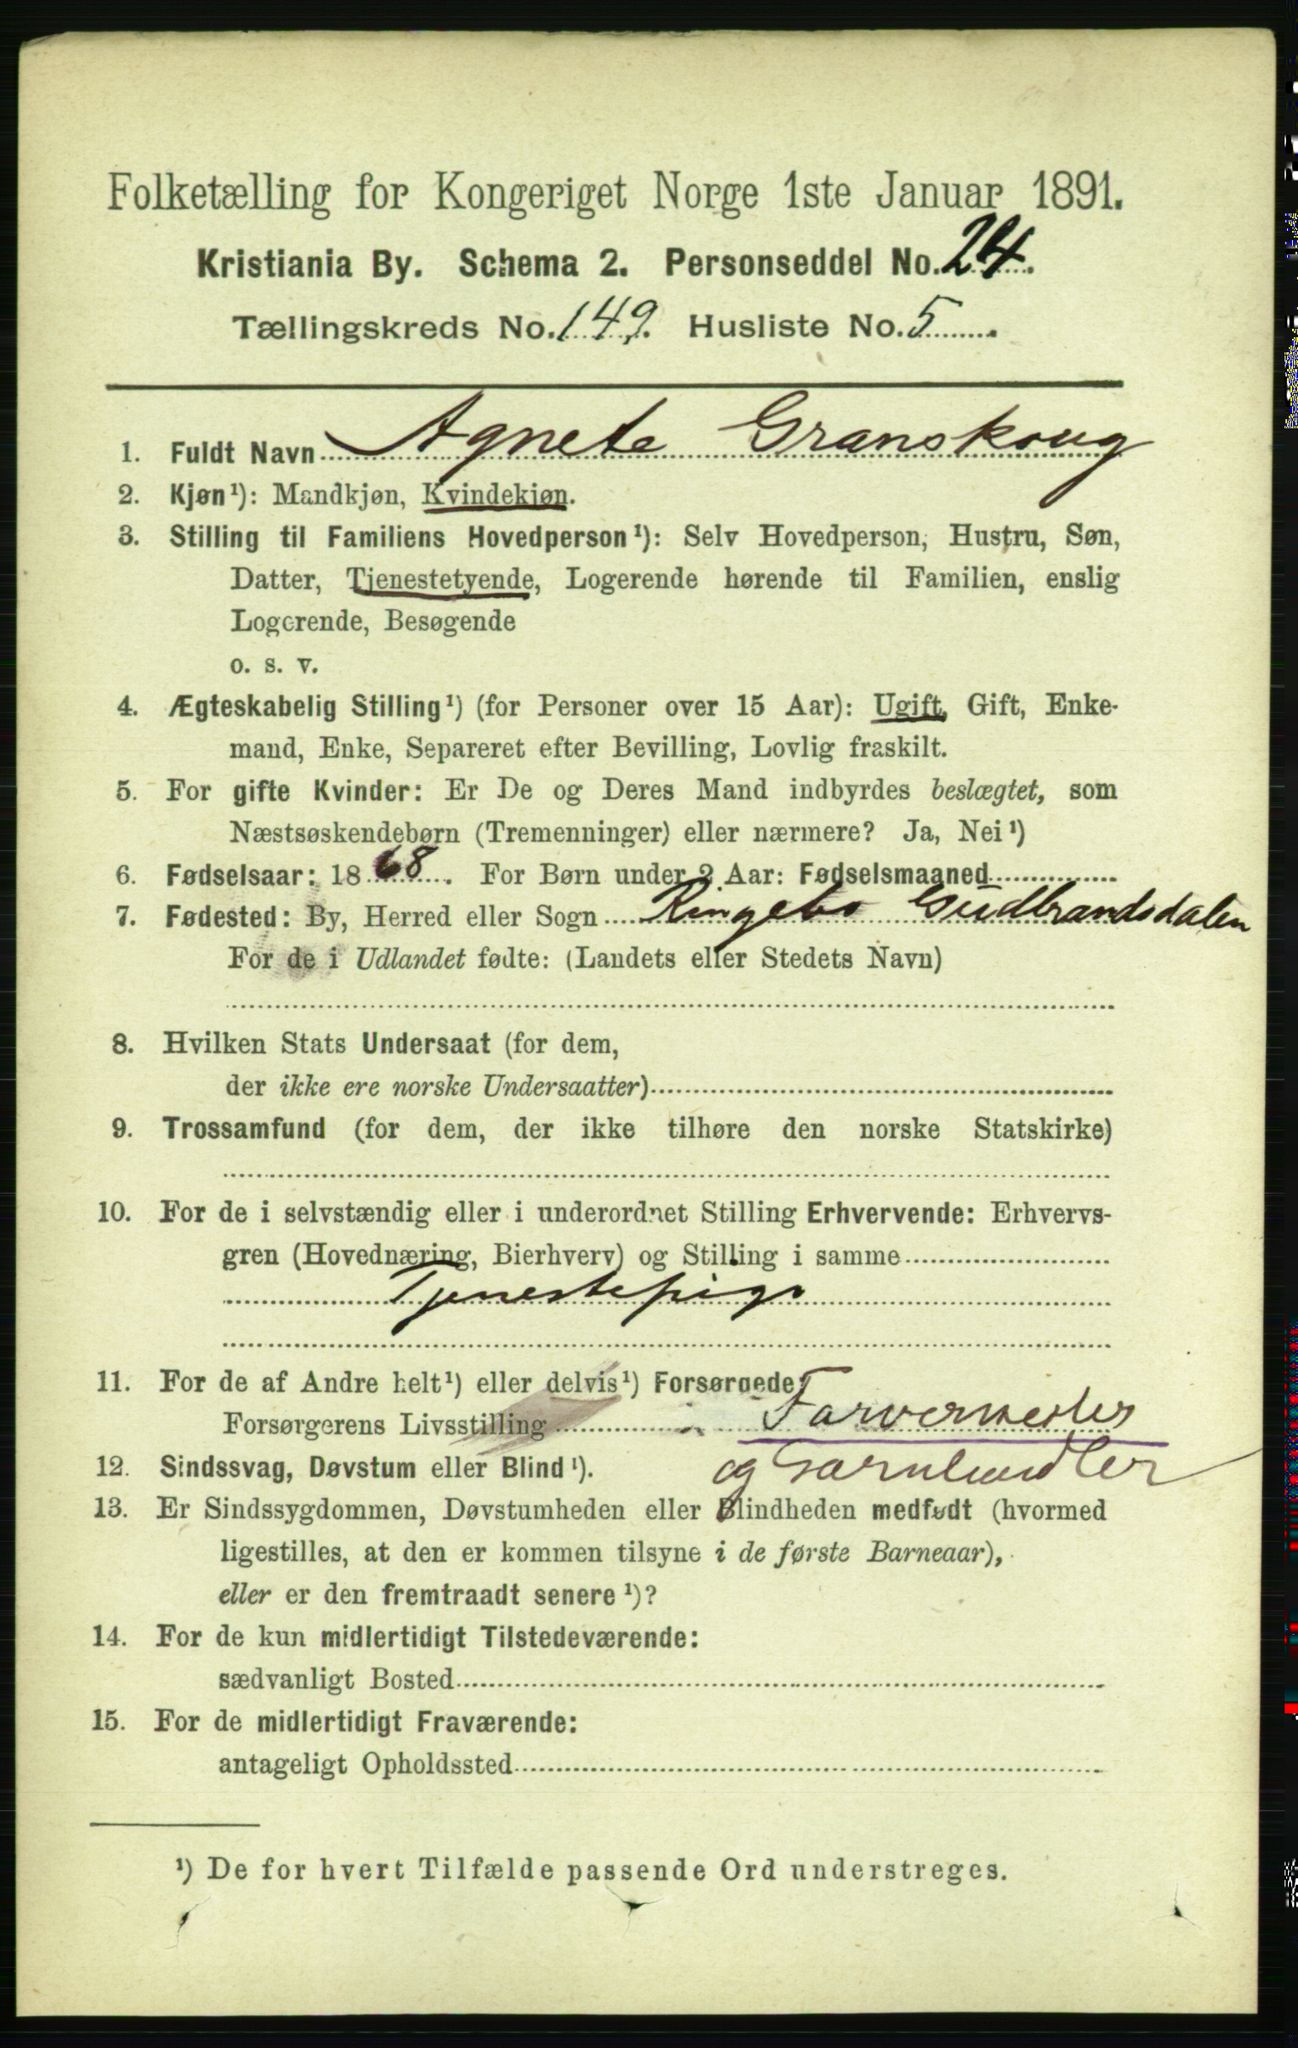 Folketælling for Kongeriget Norge 1ste Januar 1891.
Kristiania By. Schema 2. Personseddel No. 24.
Tællingskreds No. 149. Husliste No. 5.
1. Fuldt Navn Agnete Granskoug
2. Kjøn¹): Mandkjøn, Kvindekjøn.
3. Stilling til Familiens Hovedperson¹): Selv Hovedperson, Hustru, Søn,
Datter, Tjenestetyende, Logerende hørende til Familien, enslig
Logerende, Besøgende
o. s. v.
4. Ægteskabelig Stilling¹) (for Personer over 15 Aar): Ugift, Gift, Enke-
mand, Enke, Separeret efter Bevilling, Lovlig fraskilt.
5. For gifte Kvinder: Er De og Deres Mand indbyrdes beslægtet, som
Næstsøskendebørn (Tremenninger) eller nærmere? Ja, Nei¹)
6. Fødselsaar: 1868. For Børn under 2 Aar: Fødselsmaaned
7. Fødested: By, Herred eller Sogn Ringebo Gudbrandsdalen
For de i Udlandet fødte: (Landets eller Stedets Navn)
8. Hvilken Stats Undersaat (for dem,
der ikke ere norske Undersaatter)
9. Trossamfund (for dem, der ikke tilhøre den norske Statskirke)
10. For de i selvstændig eller i underordnet Stilling Erhvervende: Erhvervs-
gren (Hovednæring, Bierhverv) og Stilling i samme
Tjenestepige
11. For de af Andre helt¹) eller delvis¹) Forsørgede
Forsørgerens Livsstilling Farvermester
12. Sindssvag, Døvstum eller Blind¹). og Garnhandler
13. Er Sindssygdommen, Døvstumheden eller Blindheden medfødt (hvormed
ligestilles, at den er kommen tilsyne i de første Barneaar),
eller er den fremtraadt senere¹)?
14. For de kun midlertidigt Tilstedeværende:
sædvanligt Bosted
15. For de midlertidigt Fraværende:
antageligt Opholdssted
¹) De for hvert Tilfælde passende Ord understreges.